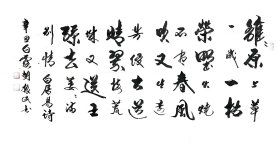 離々原上草
一歲一枯
榮野火燒
不盡春風
吹又生遠
芳侵古道
晴翠接荒
城又送王
孫去萋々滿
別情白居易詩
辛丑白露胡